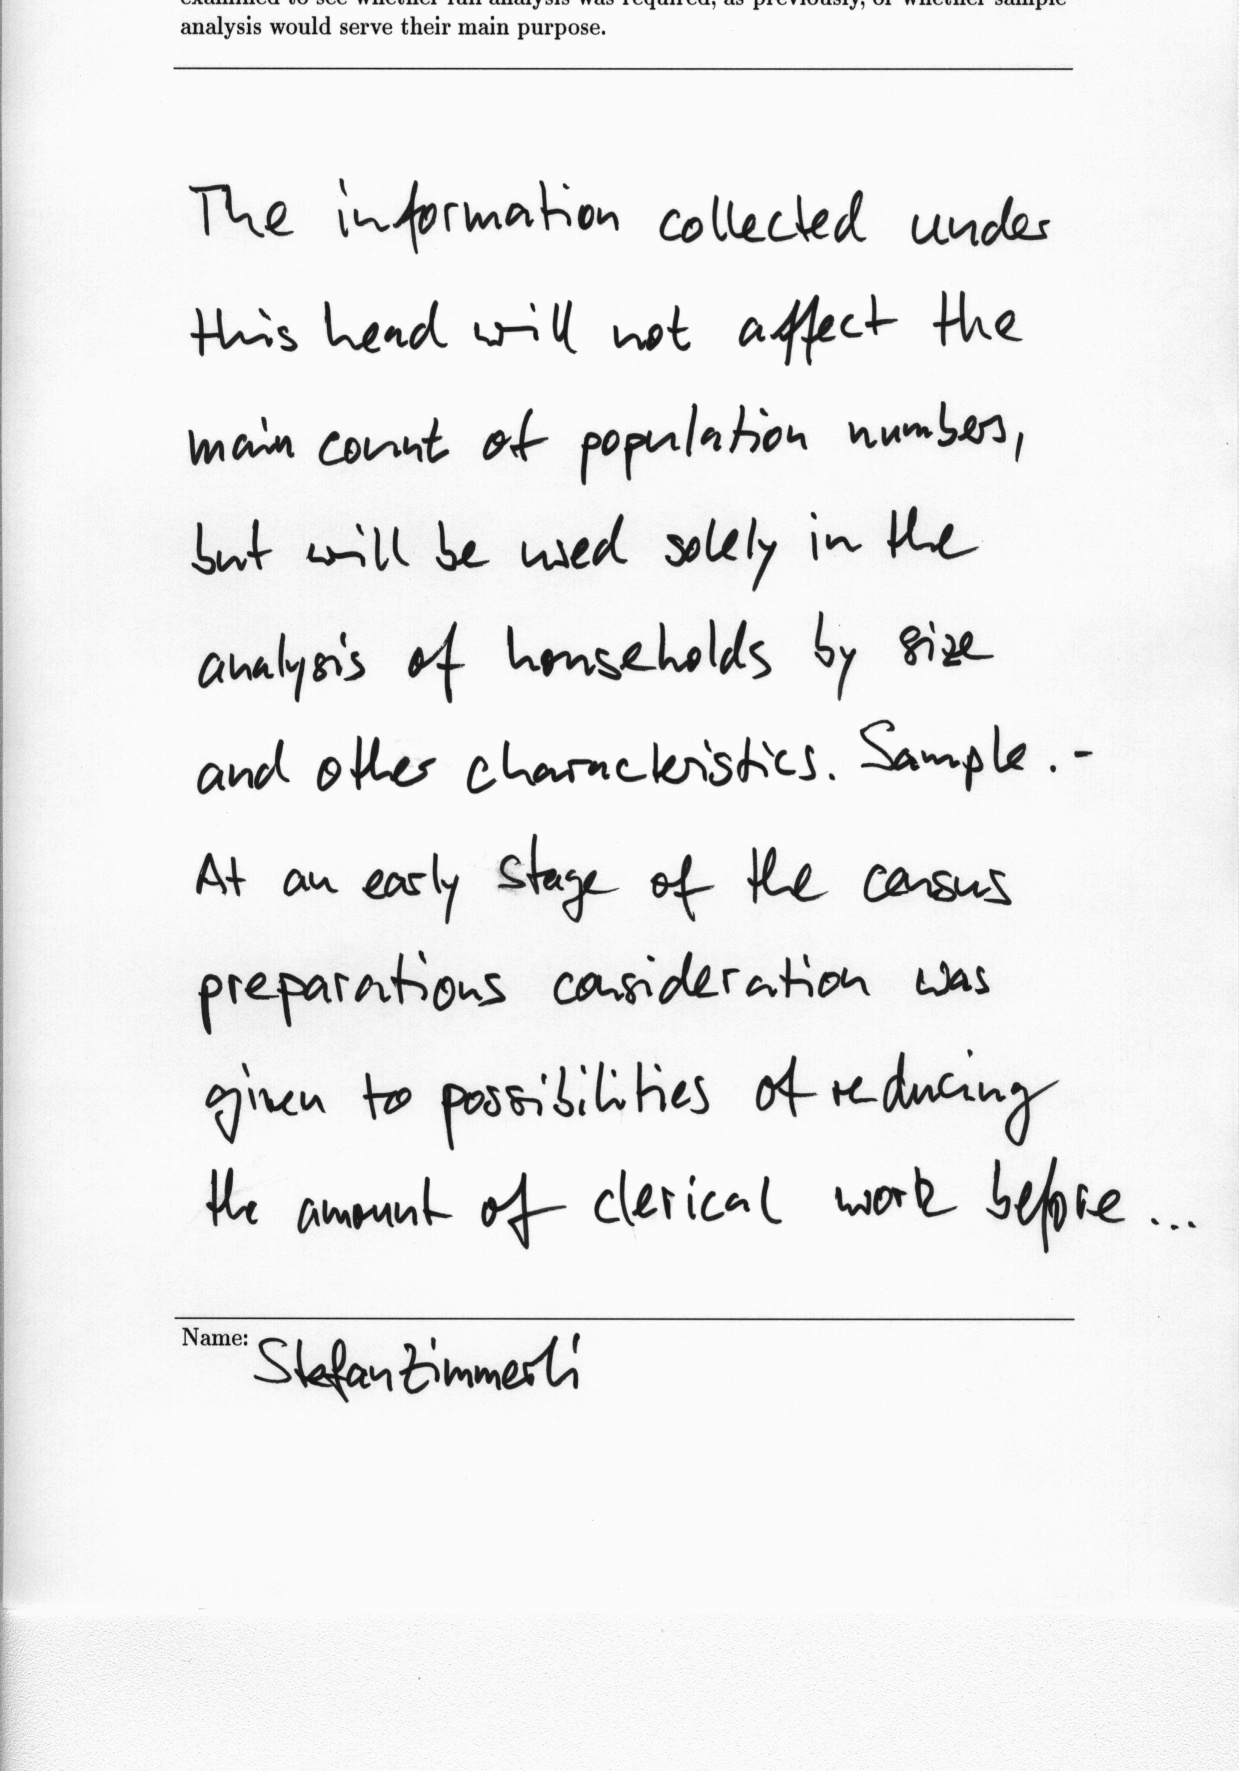 examined to see whether full analysis was required, as previously, or whether sample
analysis would serve their main purpose.
The information collected under
this head will not affect the
main count of population numbers,
but will be used solely in the
analysis of households by size
and other characteristics. Sample. -
At an early stage of the census
preparations consideration was
given to possibilities of reducing
the amount of clerical work before ...
Name: Stefan Zimmerli